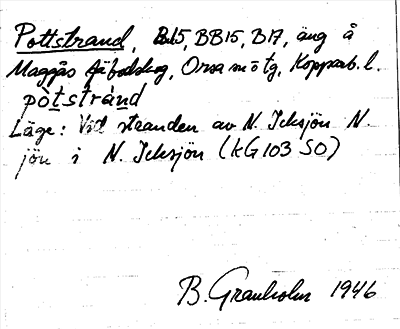 Pottstrand, B15, BB15, B17, äng å
Maggås fäbodskog, Orsa sn o tg, Kopparb. l.
pòtstránd
Läge: Vid stranden av N. Icksjön N.
jön i N. Icksjön (KG 103 SO)
B. Granholm 1946